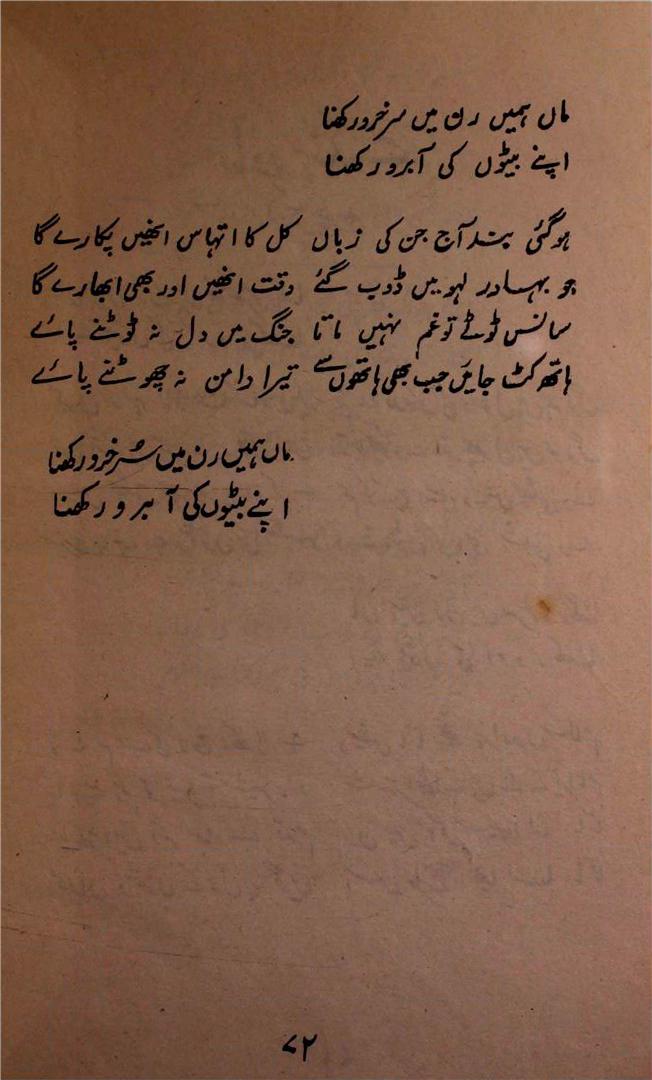 ماں ہمیں رن میں سرخرو رکھنا
اپنے بیٹوں کی آبرو رکھنا
ہوگئی بند آج جن کی زباں کل کا اتہاس انھیں پکارے گا
جو بہادر لہو میں ڈوب گئے وقت انھیں اور بھی ابھارے گا
سانس ٹوٹے تو غم نہیں ماتا جنگ میں دل نہ ٹوٹنے پائے
ہاتھ کٹ جائیں جب بھی ہاتھوں سے تیرا دامن نہ چھوٹنے پائے
ماں ہمیں رن میں سُرخرو رکھنا
اپنے بیٹوں کی آبرو رکھنا
۷۲